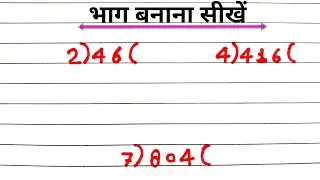 भाग बनाना सीखें
2)46( 4)416(
7)804(